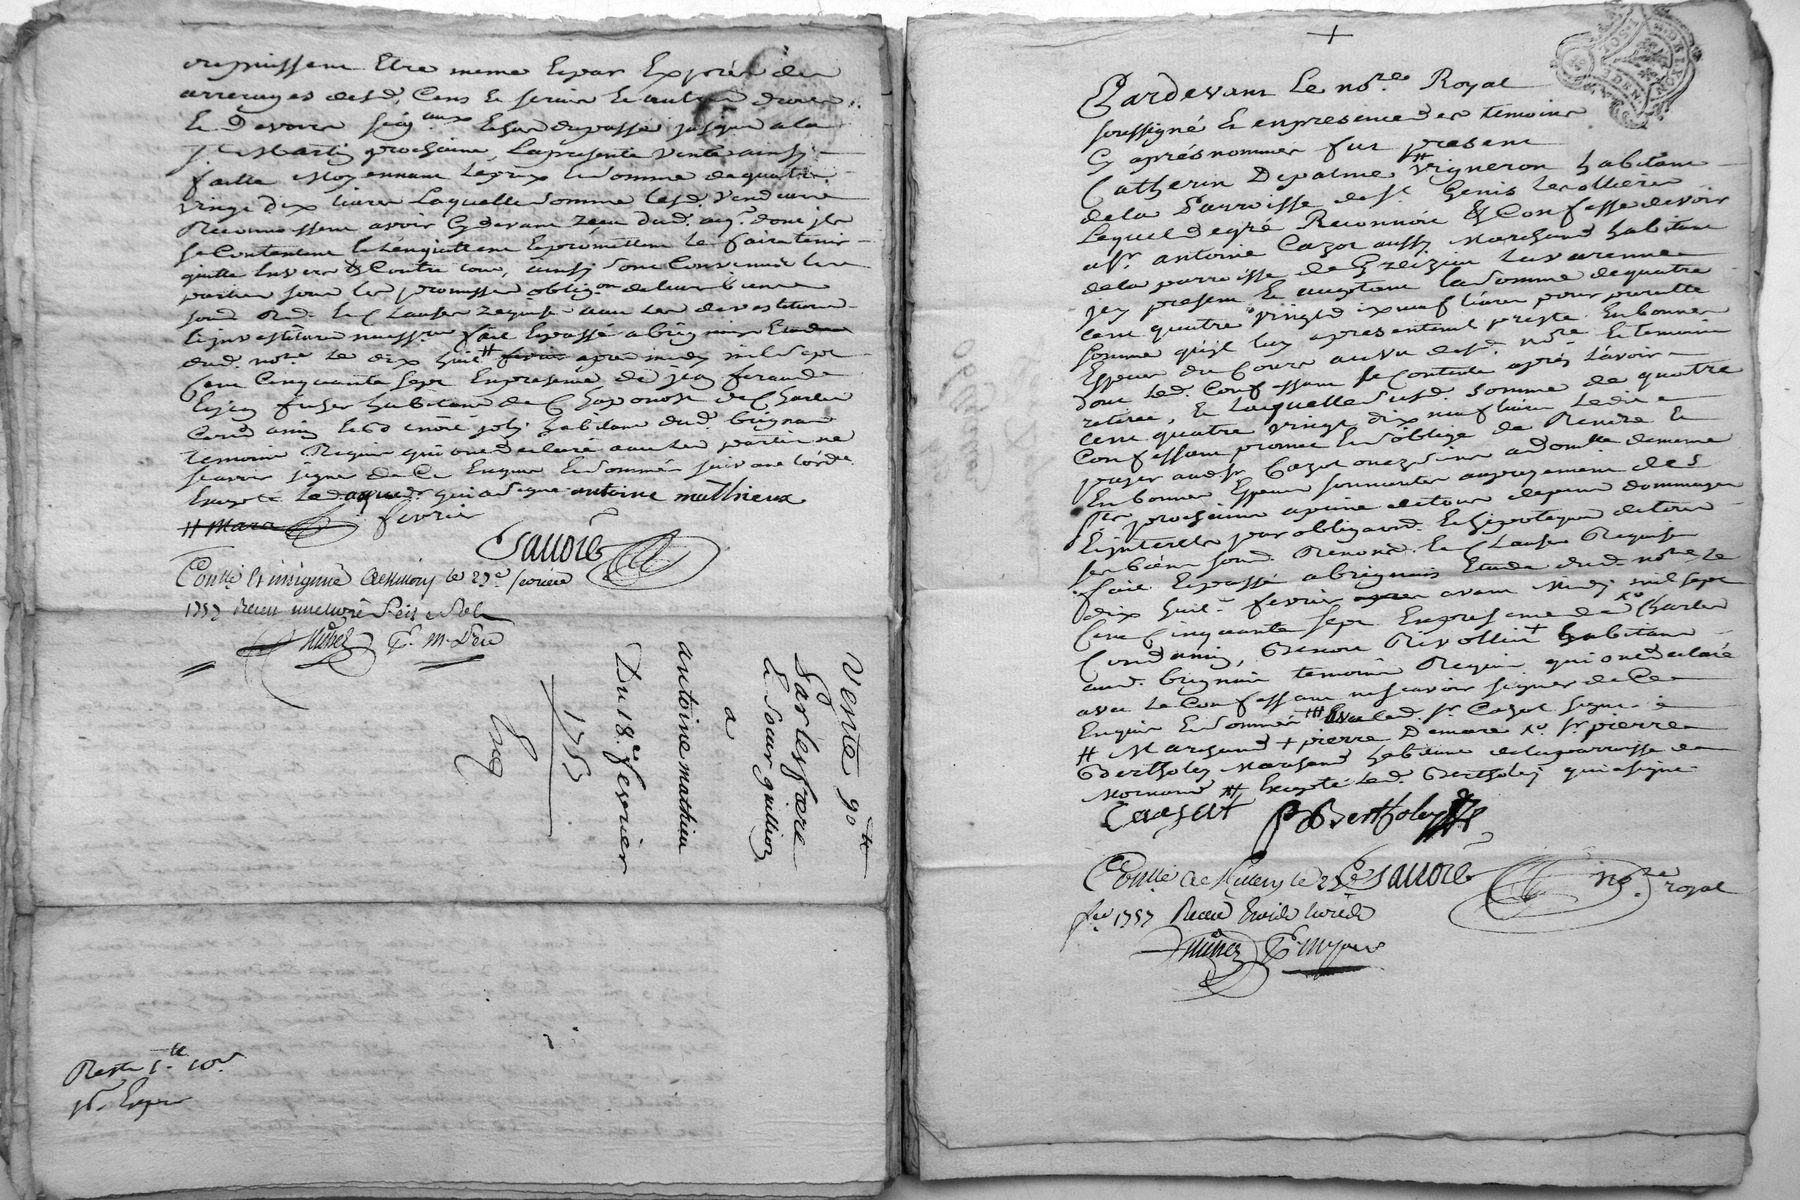 puissent Etre meme Et par Exprès des
arrerages desd. Cens Et servis Et autres droits
Et Devoirs seig.aux Echus du passé jusques a la
s.t Martin prochaine, La presente vente ainsy
faitte Moyennant Le prix Et somme de quatre
vingt dix livres Laquelle somme Lesd. vendeurs
Reconnoissent avoir Cy devant reçu dud. aq.r dont ils
se Contentent Et L'en quittent Et promettent Le faire tenir
quitte Envers Et Contre tous, ainsy Sont Convenus Les
parties sous Les promisses oblig.on de leurs biens
soum. Ren. Et Clauses requises avec Les devestiture
Et investiture necess.re fait Et passé a brignais Etude
dud. not.re Le dix huit # apres midy mil sept
Cent Cinquante sept En presence de jean feraud
habitant de Chaponost de Charles
Cond amin Et benoit joly habitants dud. brignais
temoins Requis qui ont declaré avec Les parties ne
scavoir signer de Ce Enquis Et sommés suivant L'ord.ce
Excepté Led. aquereur qui a signé antoine mathieux
# fevrier
Sauorè
Con.llé Et insignué a Millery le 23e fevrier
1757 Receu une livre seis s
Reste 1.tt 10s
Vente 90tt
Par les frere
Et soeur guillion
a
antoine mathieu
Du 18.e fevrier
1757
+
Pardevant Le no.re Royal
soussigné Et en presence des temoins
Cy aprés nommés fut present
Catherin Depalme # vigneron habitant
de la Parroisse de s.t Genis Les ollieres
Lequel de gré Reconnoit Et Confesse devoir
a s.r antoine Cazot aussy Marchand habitant
de la parroisse de Grezieu La varenne
icy present Et acceptant La somme de quatre
cent quatre vingt dix neuf livres pour pareille
somme qu'il luy a presentement presté En bonnes
Especes du Cours au vu desd. no.re Et temoins
dont Led. Confessant se Contente aprés L'avoir
retirée, Et Laquelle susd. somme de quatre
cent quatre vingt dix neuf livres Ledit
Confessant promet Et s'oblige de Rendre Et
payer aud. s.r Cazot ou ez siens a domille de meme
En bonnes Especes sonnantes au payement des
S.ts prochains a peine de tous depens dommages
Et interets pour obligaon. Et hipoteque de tous
ses biens soum. Renonc. Et Clauses Requises
fait Et passé a brignais Etude dud. notre Le
dix huit. fevrier avant Midy mil sept
Cent Cinquante sept En presence de xo Charles
Condamin, Benoit Rivollier + habitants
aud. brignais temoins Requis qui ont declaré
avec Le Confessant ne scavoir signer de Ce
Enquis Et sommés ### avec led. s.r Cazot signé
# Marchand + pierre Demare xo s.r pierre
Bertholey Marchand habitant de la parroisse de
Mornant ### Excepté Led. Bertholey qui a signé
Cazot P Bertholey
Con.llé a Millery le 23e Sauorè no.re royal
fev. 1757 Receu trois livres